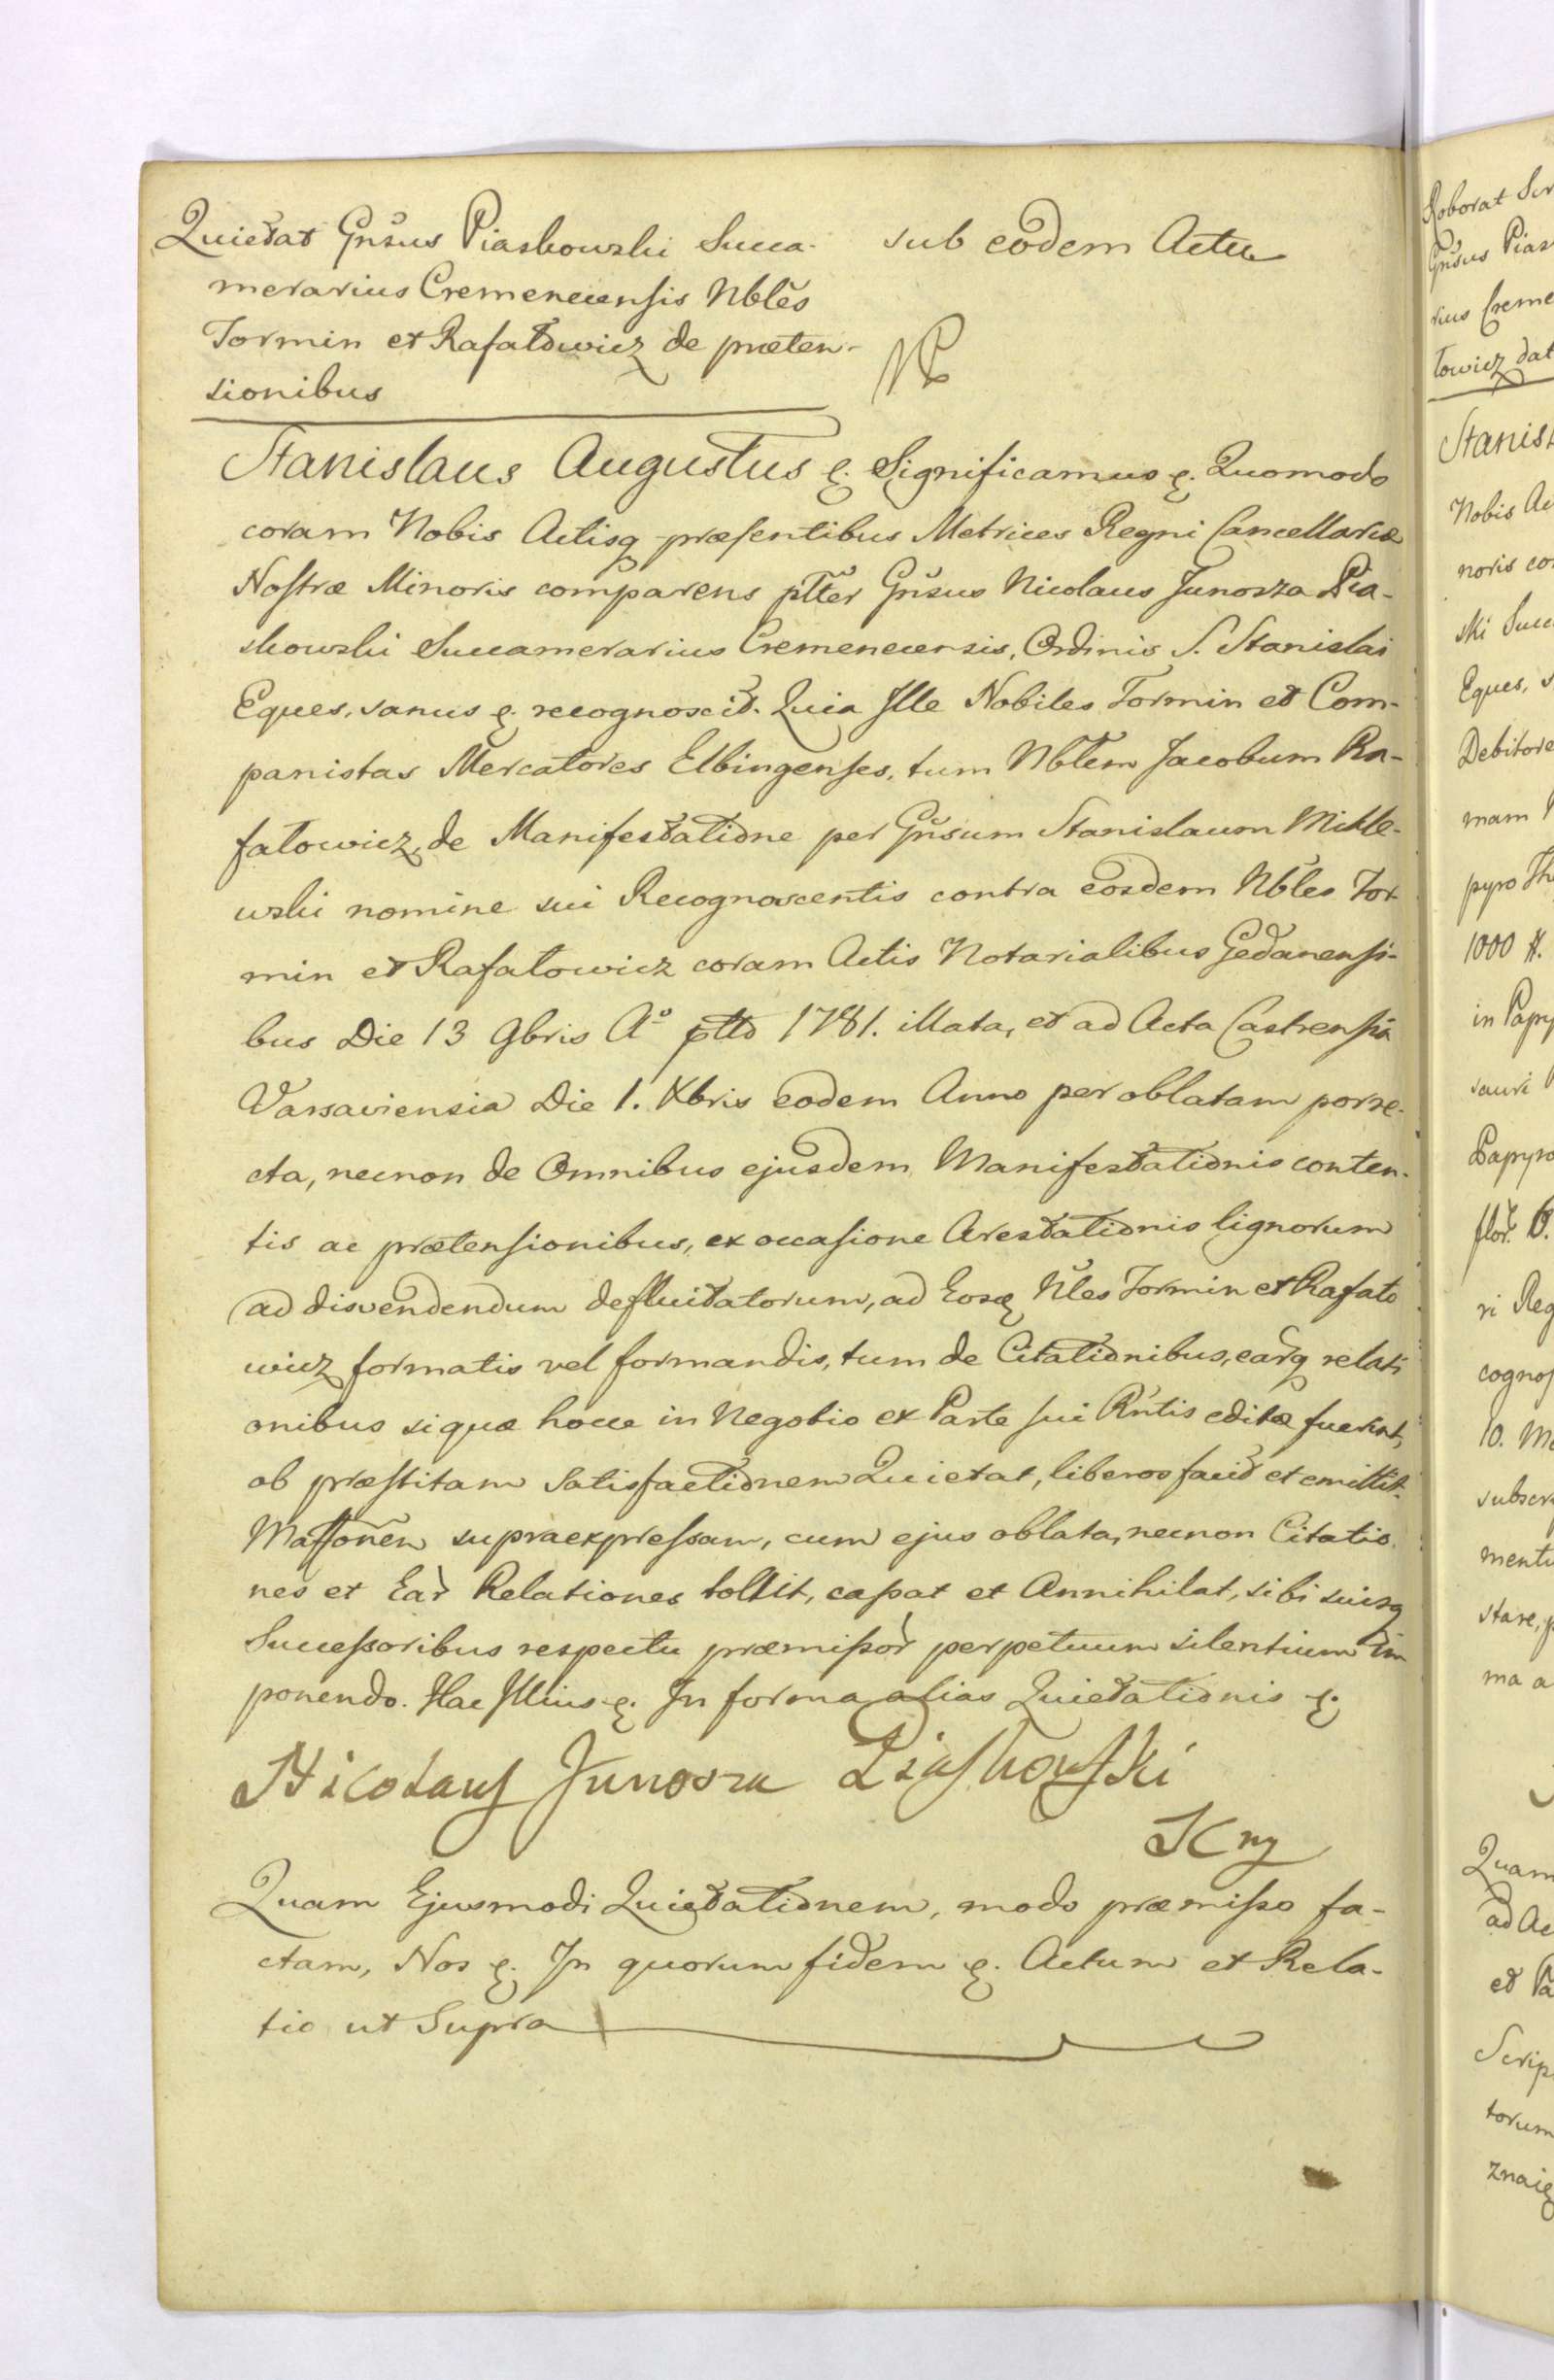 Quietat Gnsus Piaskowski Succa-
merarius Cremenecensis Nbles
Tormin et Rafałowicz de præten-
sionibus
sub eodem Actu
Stanislaus Augustus &. Significamus &. Quomodo
coram Nobis Actisq præsentibus Metrices Regni Cancellariæ
Nostræ Minoris comparens pltter Gnsus Nicolaus Junosza Pia-
skowski Succamerarius Cremenecensis, Ordinis S. Stanislai
Eques, sanus &. recognoscit. Quia Ille Nobiles Tormin et Com-
panistas Mercatores Elbingenses, tum Nblem Jacobum Ra-
fałowicz, de Manifestatione per Gnsum Stanislaum Mikle-
wski nomine sui Recognoscentis contra eosdem Nbles Tor-
min et Rafałowicz coram Actis Notarialibus Gedanensi-
bus Die 13 9bris Aº ptto 1781. illata, et ad Acta Castrensia
Varsaviensia Die 1. Xbris eodem Anno per oblatam porre-
cta, necnon de Omnibus ejusdem Manifestationis conten-
tis ac prætensionibus, ex occasione Arestationis lignorum
ad disvendendum defluitatorum, ad Eosq Nles Tormin et Rafało
wicz formatis vel formandis, tum de Citationibus, earq relati
onibus siquæ hocce in Negotio ex Parte sui Rntis editæ fuerint,
ob præstitam Satisfactionem Quietat, liberos facit et emittit.
Mattonen supraexpressam, cum ejus oblata, necnon Citatio
nes et Ear Relationes tollit, cassat et Annihilat, sibi suisq
Successoribus respectu præmissor perpetuum silentium im
ponendo. Hac Illius &. In forma alias Quietationis &.
Nicolaus Junosza Piaskowski
PKrz
Quam Ejusmodi Quietationem, modo præmisso fa-
ctam, Nos &. In quorum fidem &. Actum et Rela-
tio ut Supra
Roborat Scr
Gnsus Pias
rius Creme
łowicz dat
Stanisl
Nobis Ac
noris co
ski Succ
Eques, s
Debitore
mam
pyro Th
1000 #.
in Papy
sauri
Papyro
flor.
ri Reg
cognos
10. Ma
subscr
mentu
stare, p
ma a
Quam
ad Ac
et Pa
Scrip
torum
znaię